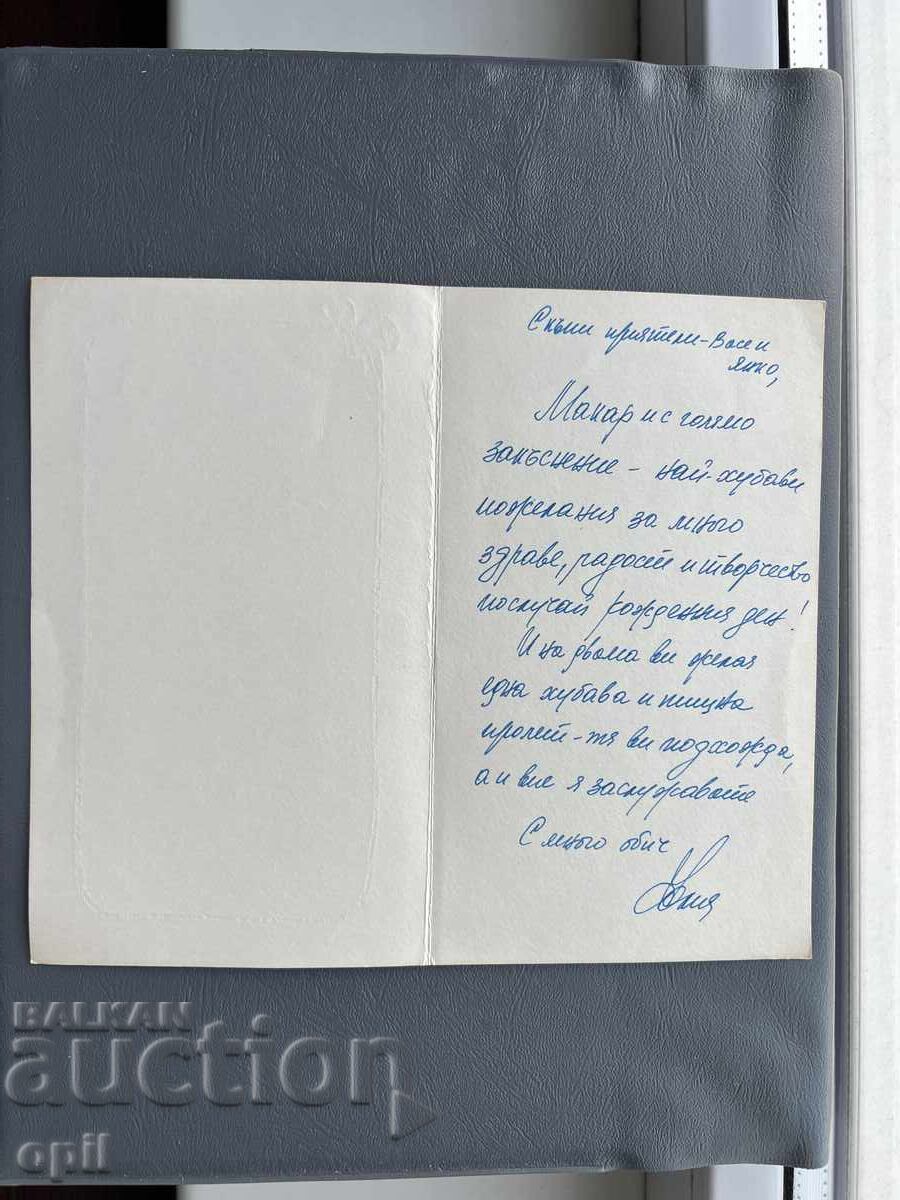 Скъпи приятели - Васе и
Янко,
Макар и с голямо
закъснение - най-хубави
пожелания за много
здраве, радост и творчество
по случай рождения ден!
И на двама ви желая
една хубава и пищна
пролет - тя ви подхожда,
а и вие я заслужавате
С много обич
BALKAN
auction
opil